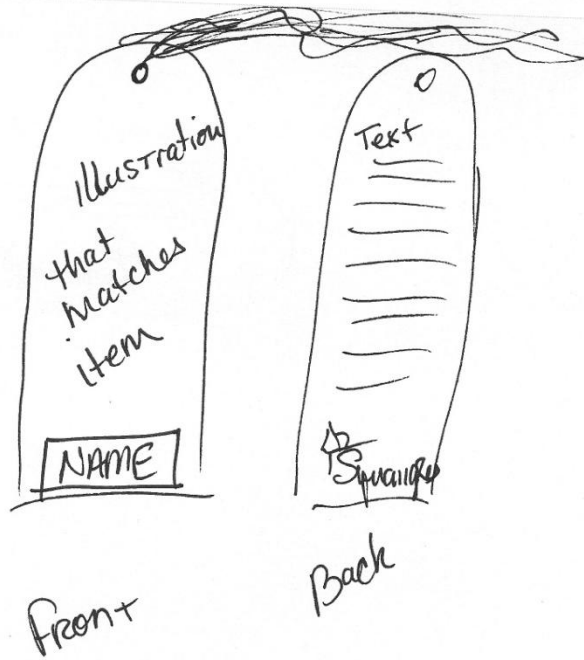 illustration
that
matches
item
NAME
Front
Text
Back